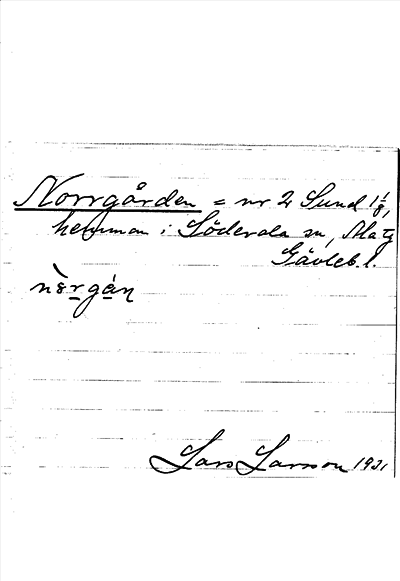 Norrgården = nr 2 Sund 1 1/8,
hemman i Söderala sn, Ala tg
Gävleb. l.
Lars Larsson 1931